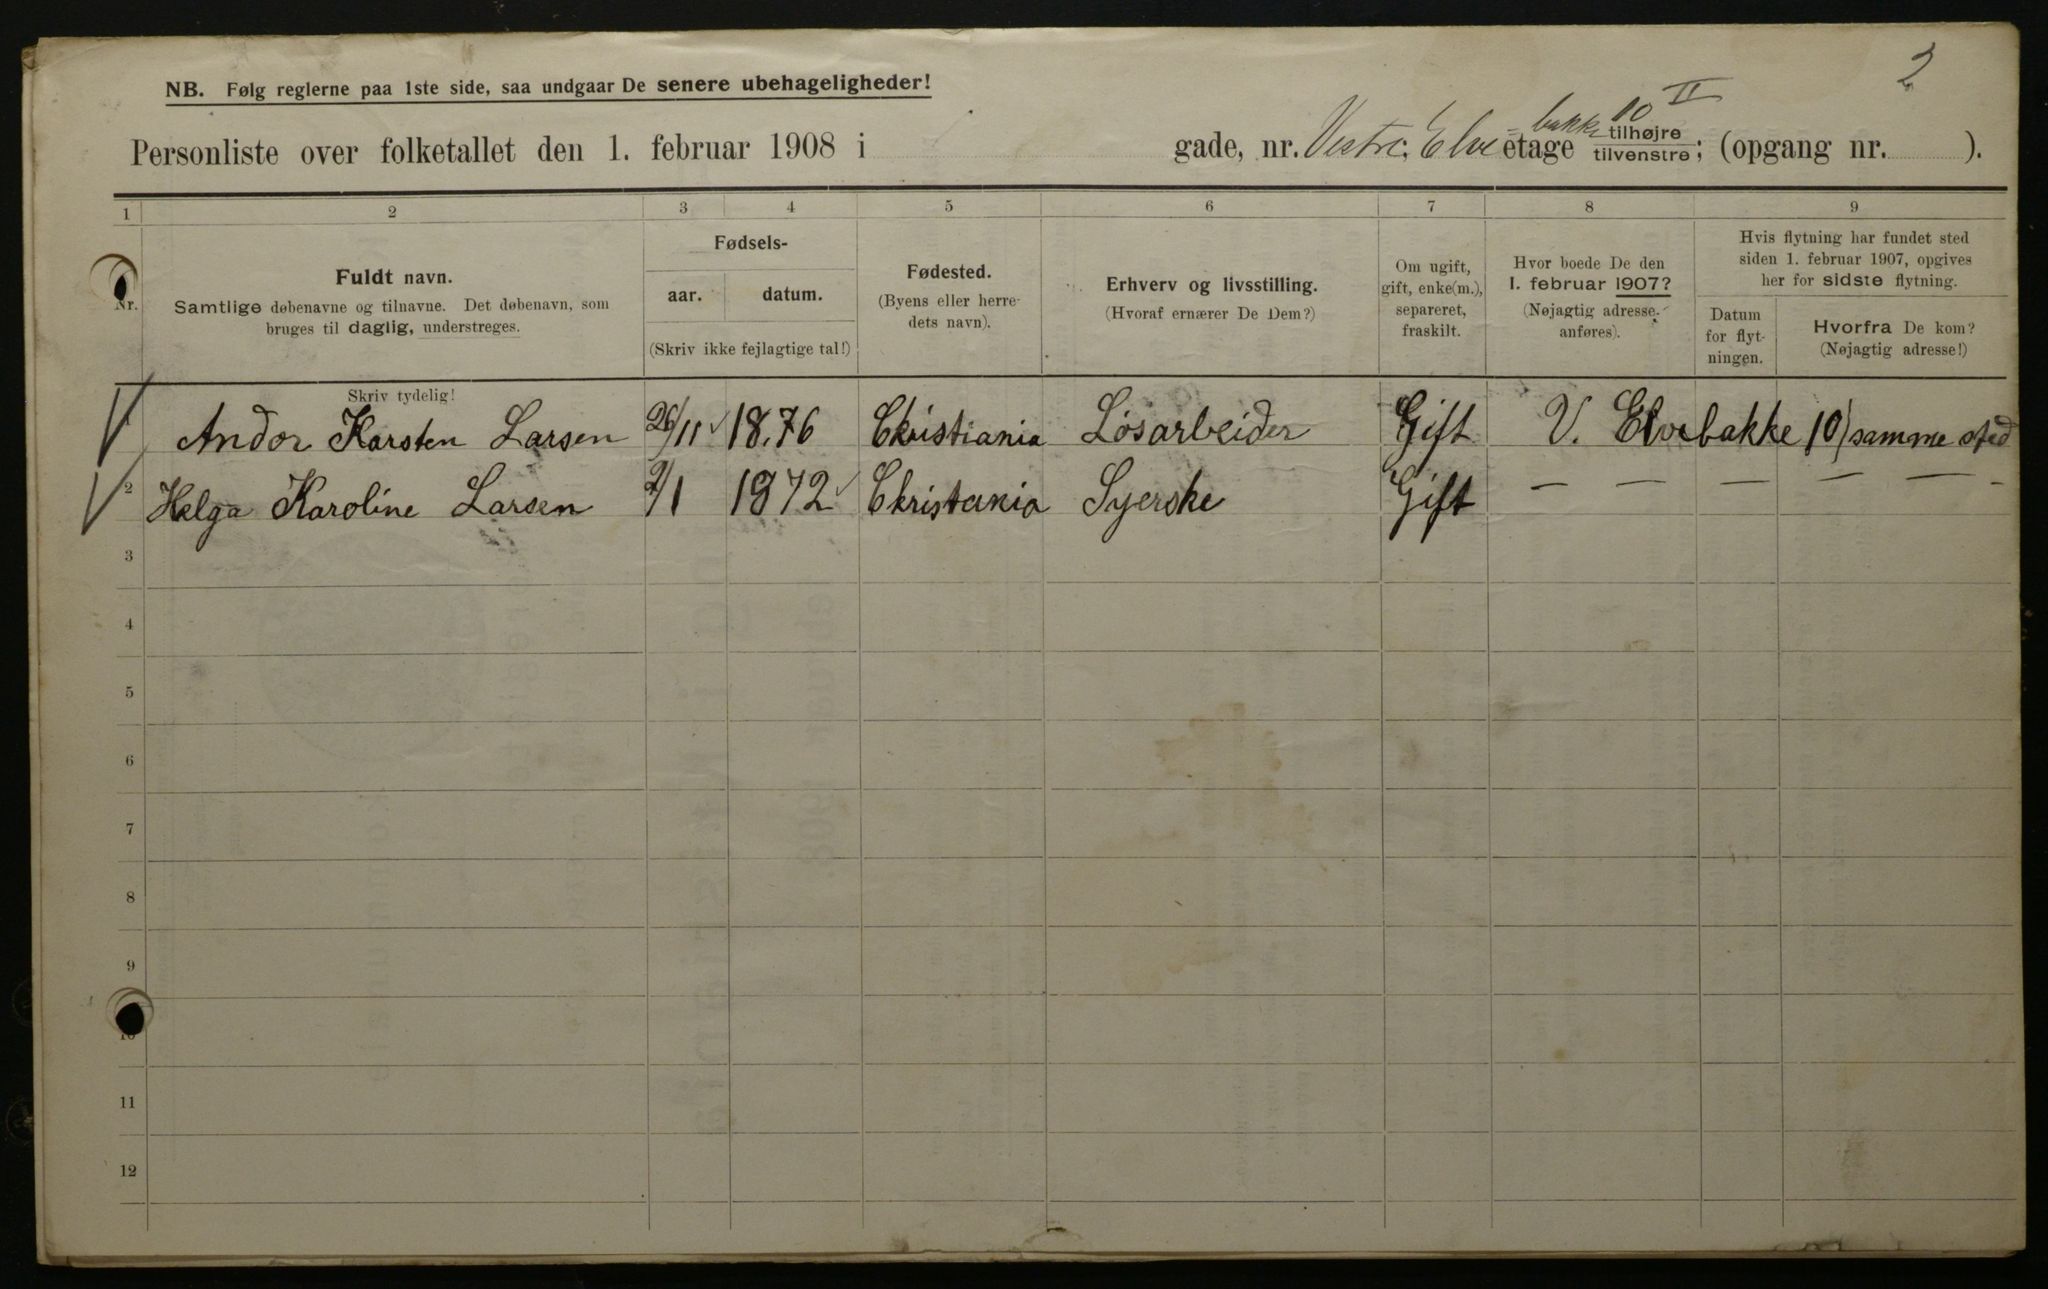 2
NB. Følg reglerne paa 1ste side, saa undgaar De senere ubehageligheder!
Personliste over folketallet den 1. februar 1908 i gade, nr. Vestre Elve=bakke 10 II etage tilhøjre/tilvenstre; (opgang nr. ).
1 2 3 4 5 6 7 8 9
Nr.
Fuldt navn.
Samtlige døbenavne og tilnavne. Det døbenavn, som
bruges til daglig, understreges.
Fødsels-
aar. datum.
(Skriv ikke fejlagtige tal!)
Fødested.
(Byens eller herre-
dets navn).
Erhverv og livsstilling.
(Hvoraf ernærer De Dem?)
Om ugift,
gift, enke(m.),
separeret,
fraskilt.
Hvor boede De den
1. februar 1907?
(Nøjagtig adresse
anføres).
Hvis flytning har fundet sted
siden 1. februar 1907, opgives
her for sidste flytning.
Datum
for flyt-
ningen.
Hvorfra De kom?
(Nøjagtig adresse!)
Skriv tydelig!
Andor Karsten Larsen 26/11 18.76 Christiania Løsarbeider Gift V. Elvebakke 10 samme sted
2 Helga Karoline Larsen /1 1872 Christania Syerske Gift — — — — — -
3
4
5
6
7
8
9
10
11
12